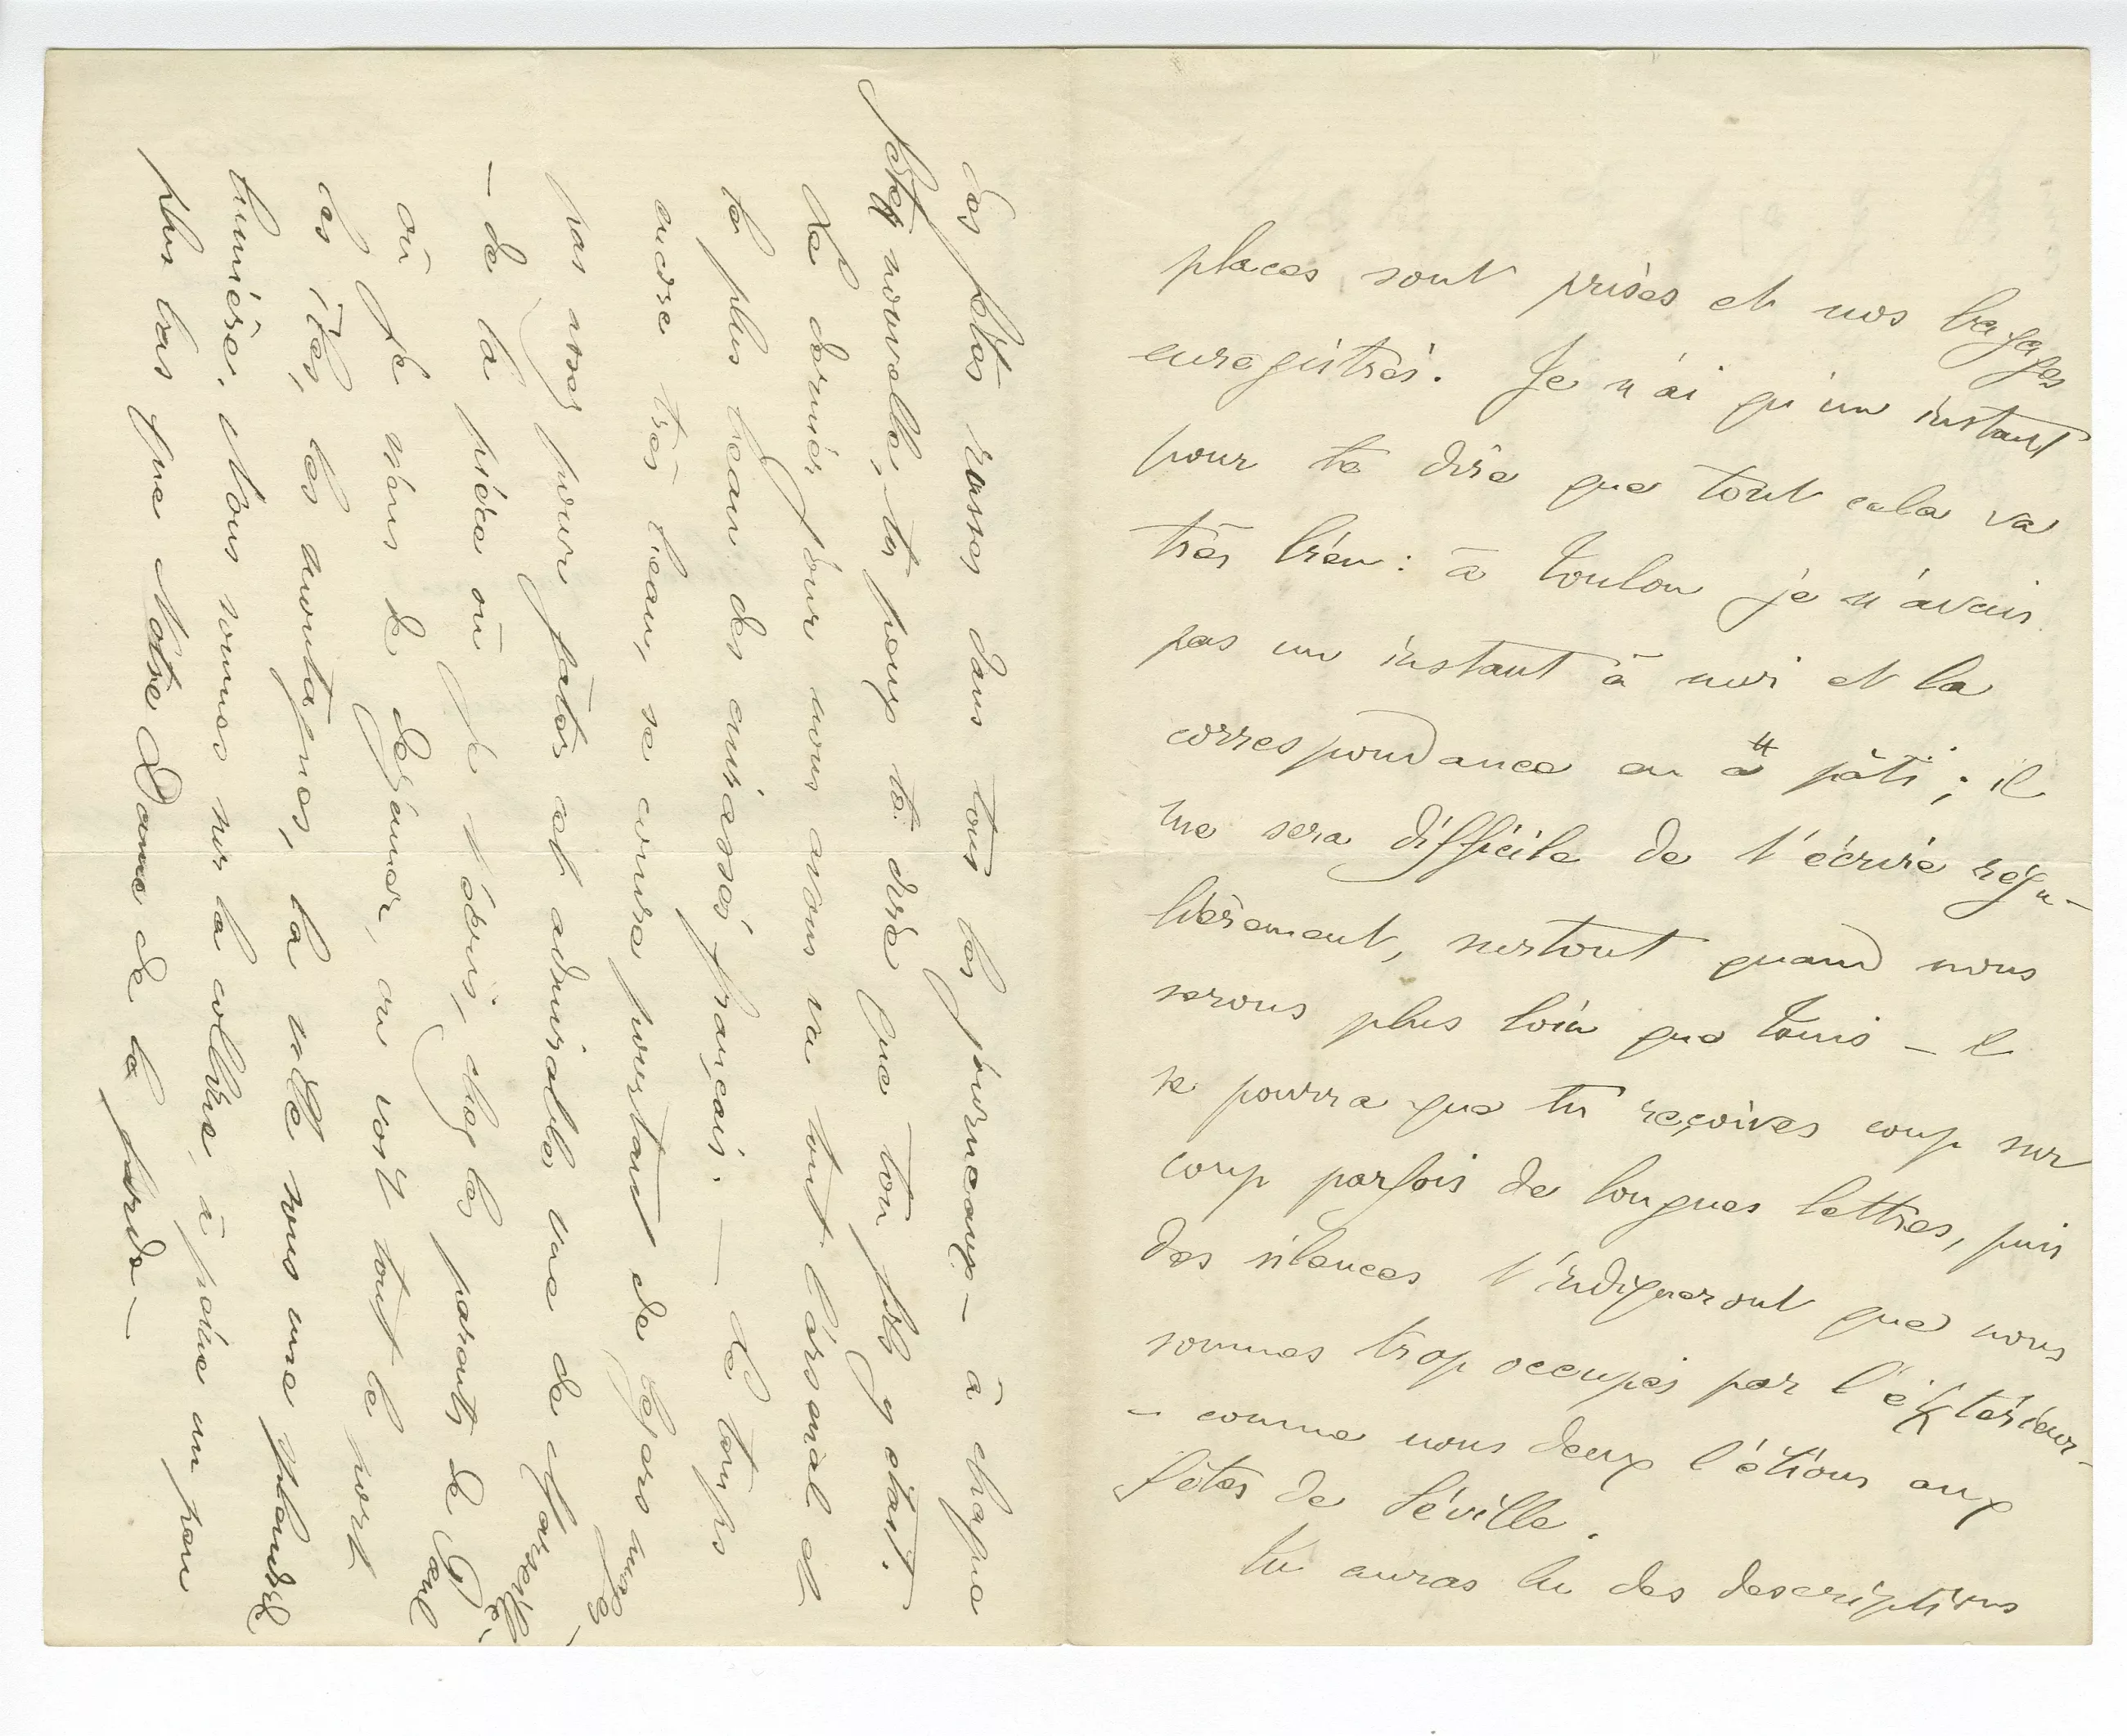 places sont prises et nos bagages
enregistrés. Je n'ai qu'un instant
pour te dire que tout cela va
très bien : à Toulon je n'avais
pas un instant à moi et la
correspondance en a pâti ; il
me sera difficile de t'écrire régu-
lièrement, surtout quand nous
serons plus loin que Tunis — il
se pourra que tu reçoives coup sur
coup parfois de longues lettres, puis
des silences t'indiqueront que nous
sommes trop occupés par l'extérieur -
- comme nous deux l'étions aux
fêtes de Séville.
Tu auras lu des descriptions
des fêtes russes dans tous les journeaux — à chaque
fête nouvelle, tu peux te dire que ton fils y était.
Le dernier jour nous avons vu tout l'arsenal et
le plus beau des cuirassés français. — Le temps
encore très beau, se couvre pourtant de légers nuages -
pas assez pour gâter cet admirable vue de Marseille
- de la pièce où je t'écris, chez les parents de Paul
où je viens de déjeuner, on voit tout le port
les îles, les montagnes, la ville sous une splendide
lumière. Nous sommes sur la colline, à peine un peu
plus bas que Notre Dame de la Garde —